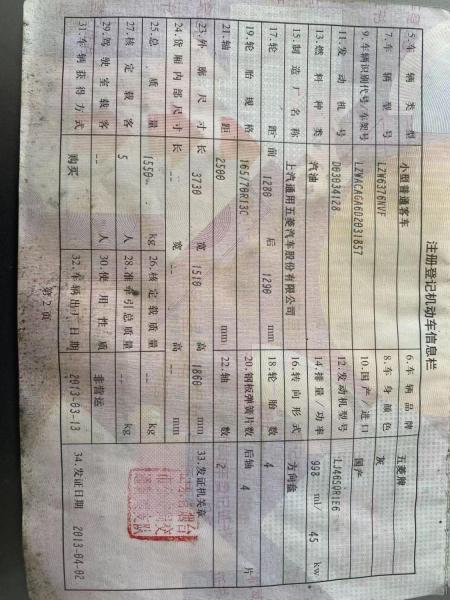 注册登记机动车信息栏
5.车辆类型 小型普通客车 6.车辆品牌 五菱牌
7.车辆型号 LZW6376NVF 8.车身颜色 灰
9.车辆识别代号/车架号 LZWACAGA6D2031857 10.国产/进口 国产
11.发动机号 D03034128 12.发动机型号 LJ465QR1E6
13.燃料种类 汽油 14.排量/功率 998 ml/ 45 kw
15.制造厂名称 上汽通用五菱汽车股份有限公司 16.转向形式 方向盘
17.轮距 前 1280 后 1290 mm 18.轮胎数 4
19.轮胎规格 165/70R13C 20.钢板弹簧片数 后轴 4 片
21.轴距 2500 mm 22.轴数 2
23.外廓尺寸 长 3730 宽 1510 高 1860 mm 33.发证机关章
24.货厢内部尺寸 长 -- 宽 -- 高 -- mm
25.总质量 1550 kg 26.核定载质量 -- kg
27.核定载客 5 人 28.准牵引总质量 -- kg
29.驾驶室载客 -- 人 30.使用性质 非营运
31.车辆获得方式 购买 32.车辆出厂日期 2013-03-13 34.发证日期 2013-04-02
第2页